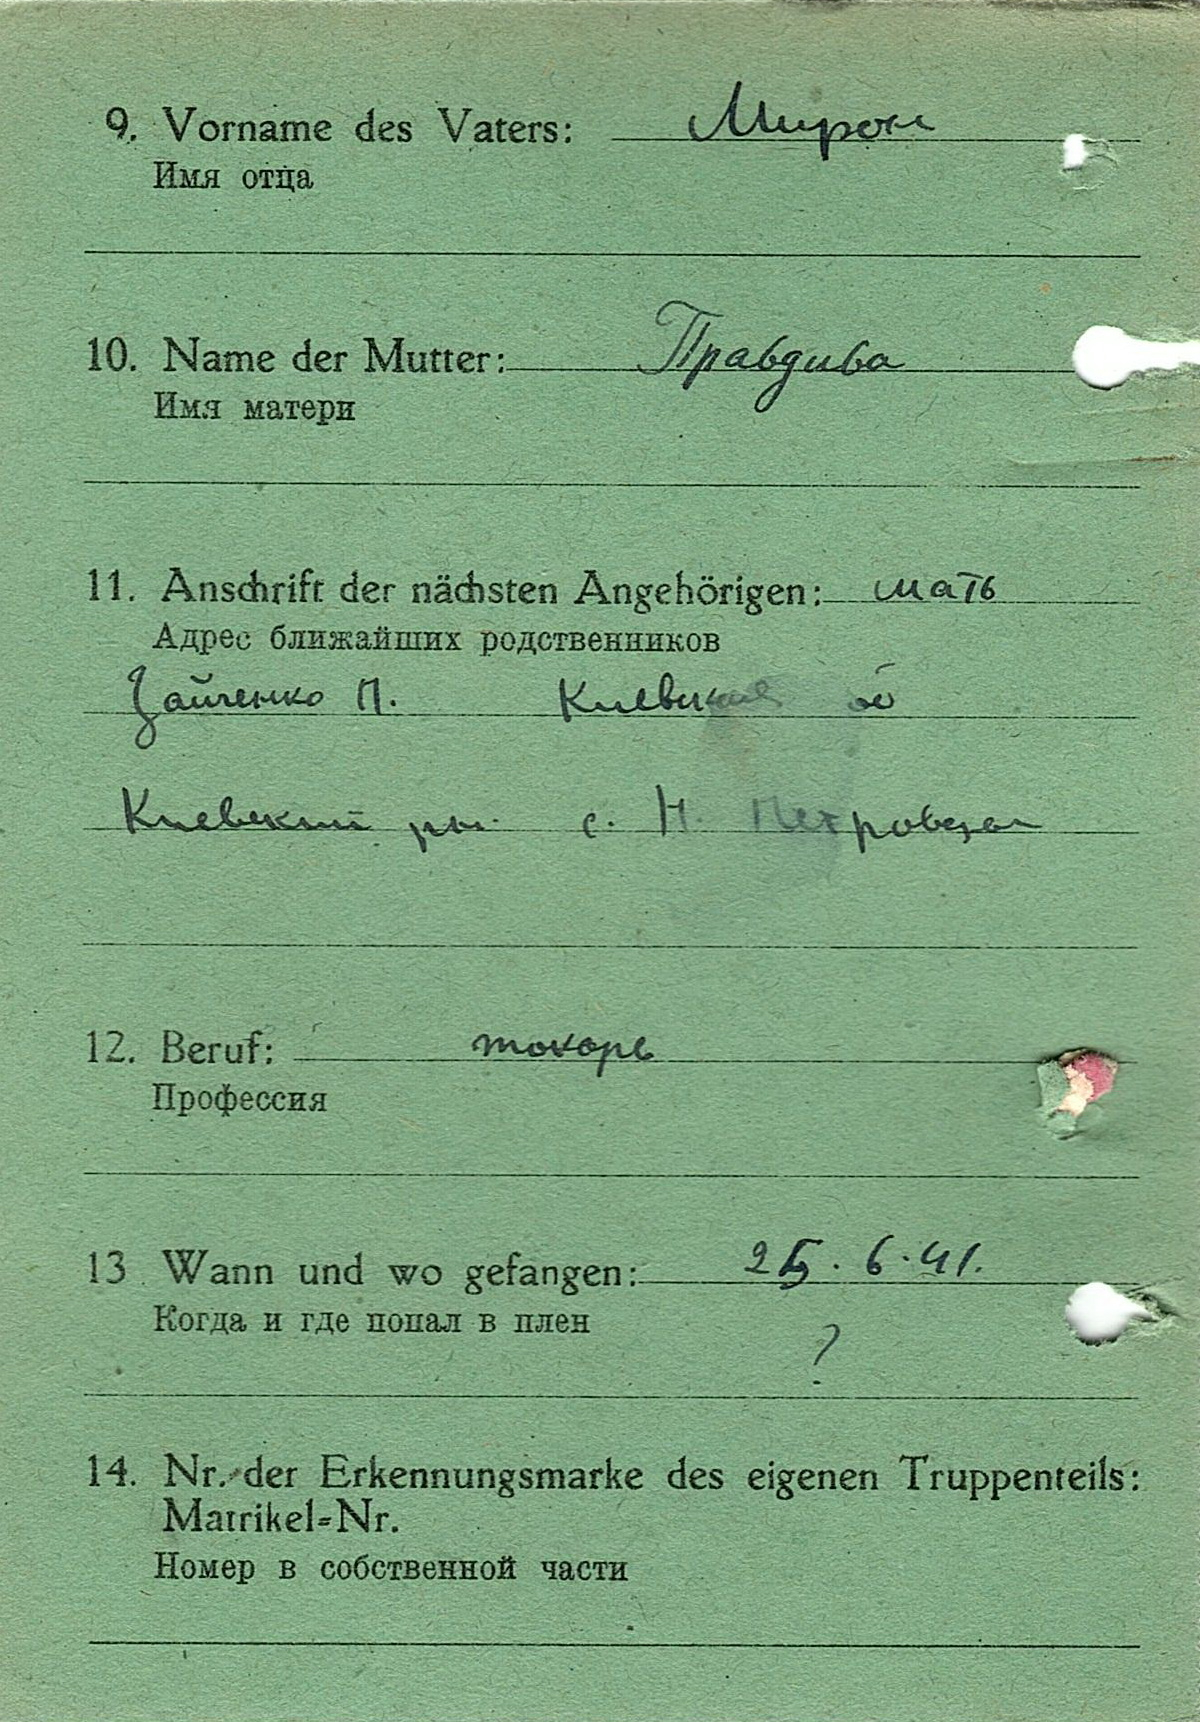 9. Vorname des Vaters: Мирон
Имя отца
10. Name der Mutter: Правдива
Имя матери
11. Anschrift der nächsten Angehörigen: мать
Адрес ближайших родственников
Зайченко П. Киевская
Киевский рн. с. Н. Петровцы
12. Beruf: токарь
Профессия
13 Wann und wo gefangen: 25.6.41.
Когда и где попал в плен
?
14. Nr. der Erkennungsmarke des eigenen Truppenteils:
Matrikel-Nr.
Номер в собственной части